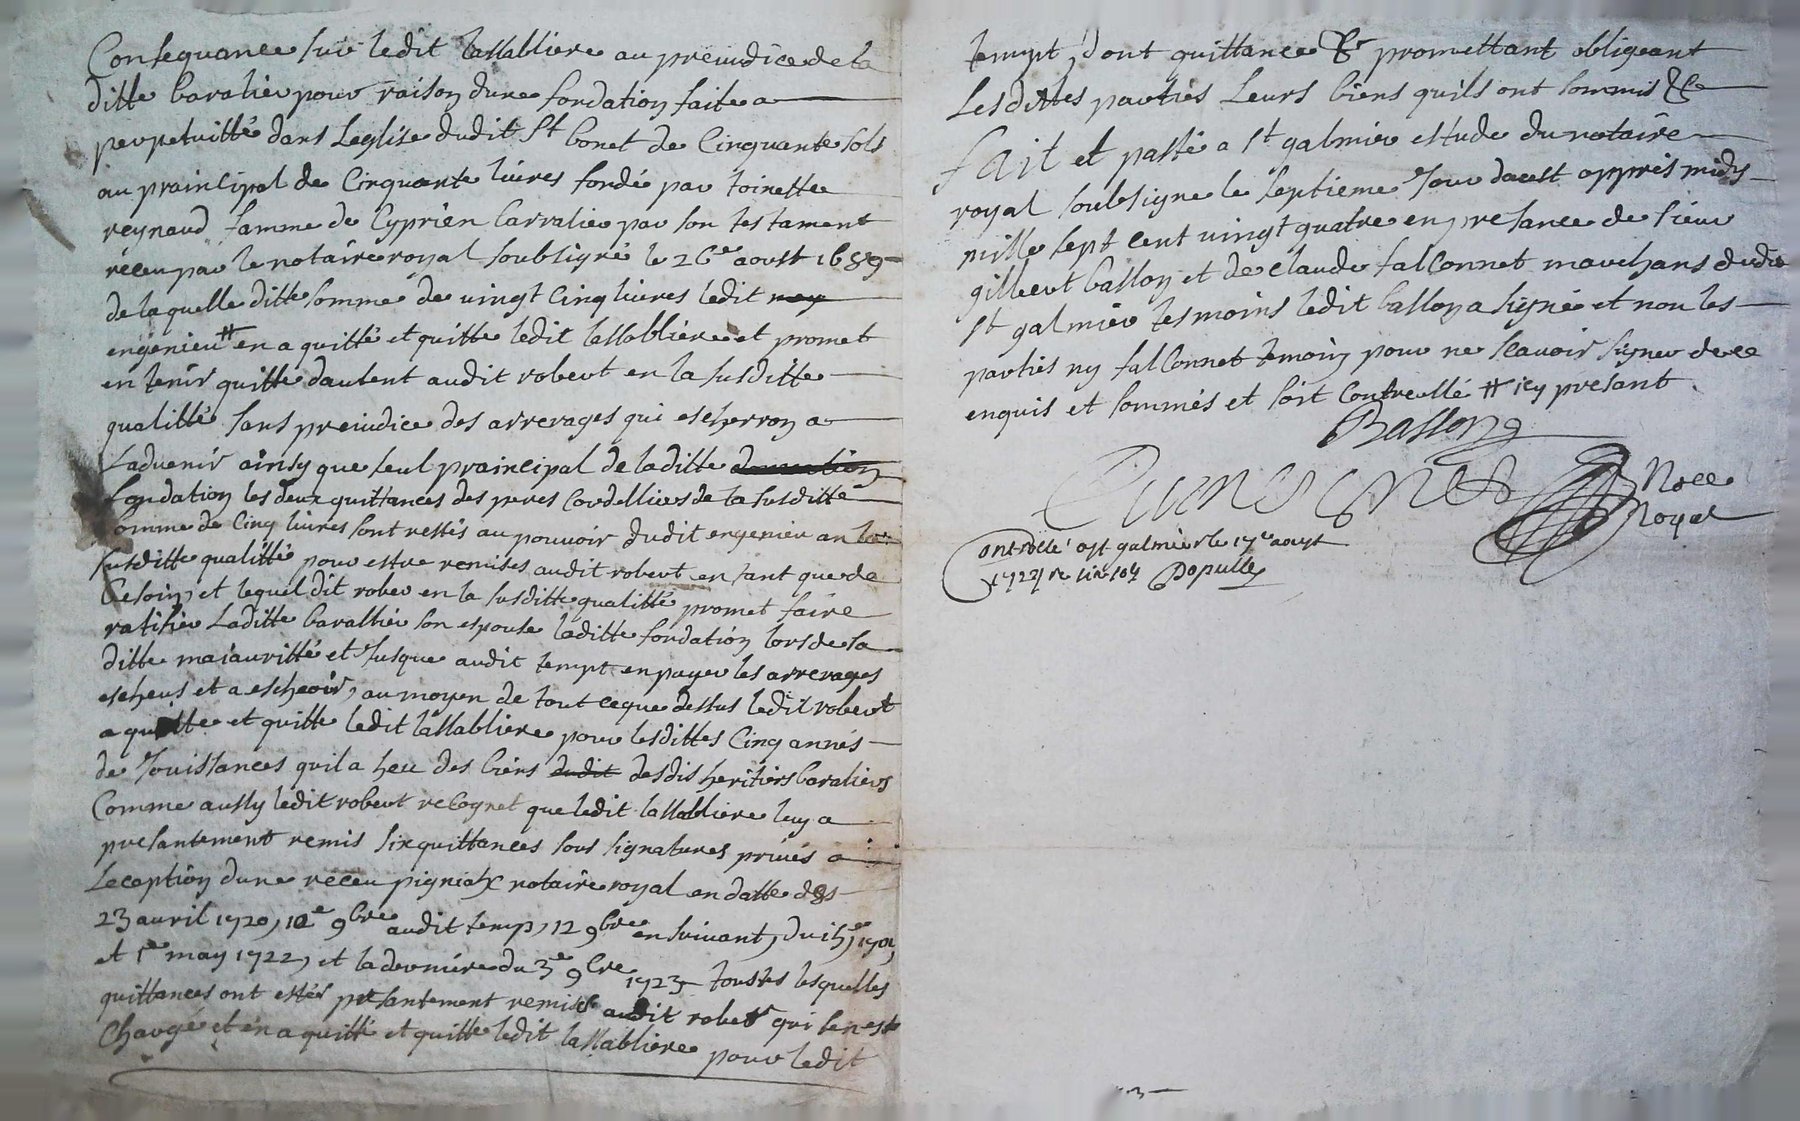 Consequance sur ledit lassabliere au preiudice de la
ditte baralier pour raison dune fondation faite a
perpetuitté dans Leglise dudit St bonet de Cinquante sols
au praincipal de Cinquante livres fondé par toinette
reynaud famme de Cyprien barralier par son testament
receu par le notaire royal soubsigné le 26e aoust 1689
de laquelle ditte somme de vingt cinq livres ledit
engenieu # en a quitté et quitte ledit lassabliere et promet
en tenir quitte dautent audit robert en la susditte
qualitté sans preiudice des arrerages qui escherron a
Ladvenir ainsy que seul praincipal de laditte
fondation les deux quittances des peres Cordelliers de la susditte
somme de Cinq livres sont restés au pouvoir dudit engenieu an la
susditte qualitté pour estre remises audit robert en tant que de
besoin, et lequel dit rober en la susditte qualitté promet faire
ratifier Laditte barallier son espouse laditte fondation lors de sa
ditte maiauritté et Jusque audit tempt en payer les arrerages
escheus et a escheoir, au moyen de tout ce que dessus ledit robert
a quitte et quitte ledit lassabliere pour lesdittes Cinq annés
de Jouissances quil a heu des biens dudit desdis heritiers baraliers
Comme aussy ledit robert recognet que ledit lassabliere luy a
presantement remis six quittances sous signatures privés a
Leception dune receu pigniol notaire royal en datte des
23 avril 1720, 9bre audit temp, 12 9bre en suivant, du
et 1er may 1722, et la derniere du 3e 9bre 1723 toutes lesquelles
quittances ont estés presantement remise audit robert qui sen est
Chargé et en a quitté et quitte ledit lassabliere pour ledit
tempt, dont quittance &c promettant obligeant
Lesdittes parties Leurs biens quils ont sommis &c
fait et passé a St galmier estude du notaire
royal soubsigne le septieme Jour daoust appres midy
mille sept cent vingt quatre en presance de sieur
gilbert basson et de claude falconnet marchans dudit
St galmier tesmoins ledit basson a signé et non les
parties ny falconnet temoin pour ne scavoir signer de ce
enquis et sommés et soit Controullé # icy presant
Basson
Nore
Royal
Controllé a St galmier le 17e aoust
1724 Dopulle